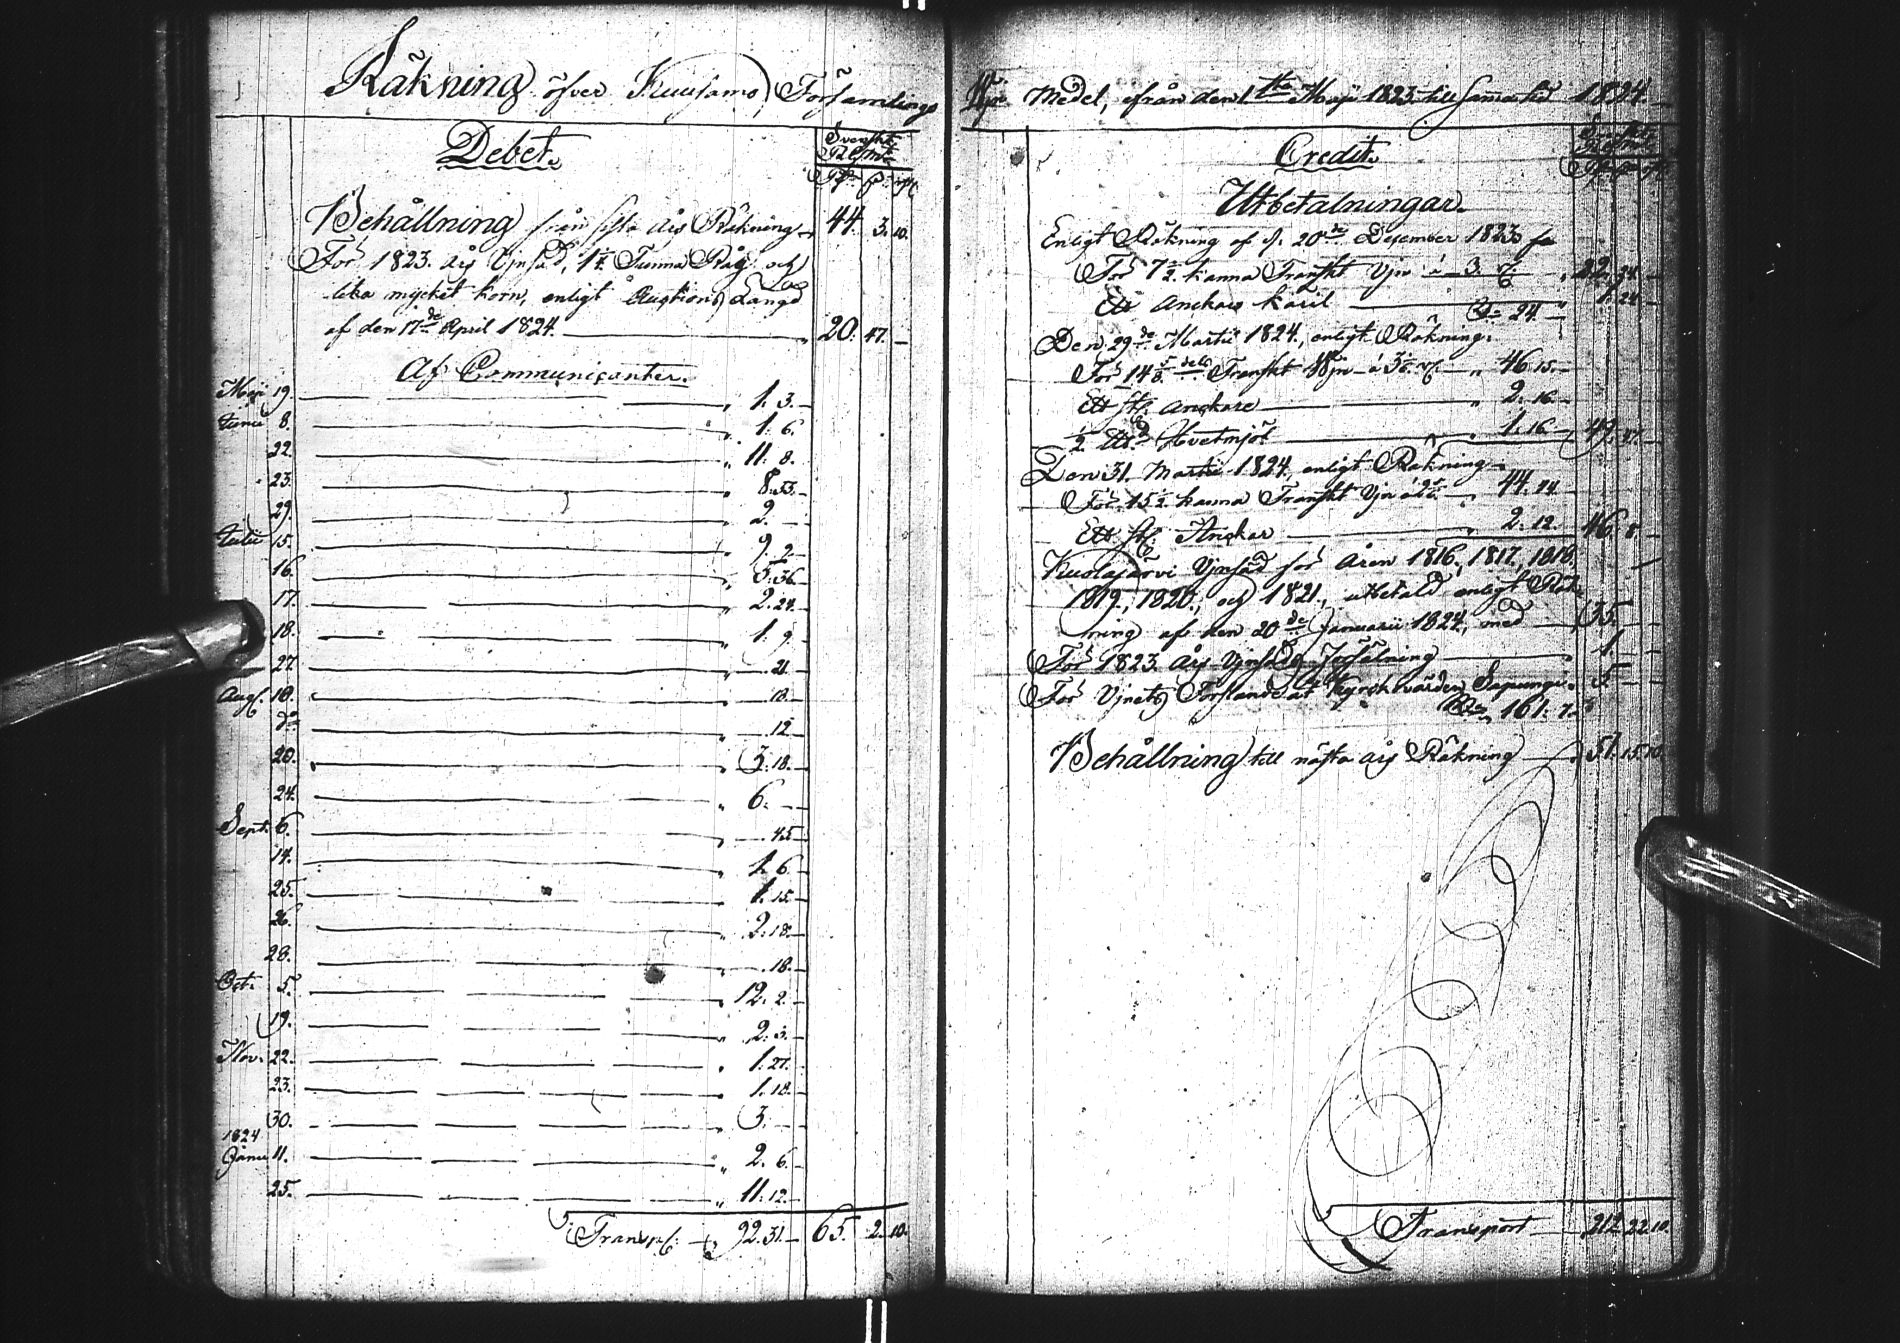 Räkning öfver Kuusamo Församlings
Debet.
Svenskt
Behållning från sista års Räkning 44. 3. 10.
För 1823 års Vjnsäd, 1 1/4 Tunna Råg och
lika mycket korn, enligt Auctions Längd
af den 17de April 1824. 20. 47. —
Af Communicanter.
Maji 19. 1. 3. —
Junii 8. 1. 6. —
22. 11. 8. —
23. 8. 33. —
29. 2. —
Julii 15. 9. 2. —
16. 5. 36. —
17. 2. 24. —
18. 1. 9. —
27. 21. —
Aug. 18. 18. —
do 12. —
20. 3. 18. —
24. 6. —
Sept. 6. 45. —
14. 1. 6. —
25. 1. 15. —
26. 2. 18. —
28. 18. —
Oct. 5. 12. 2. —
19. 2. 3. —
Nov. 22. 1. 27. —
23. 1. 18. —
30. 3. —
1824
Janu 11. 2. 6. —
25. 11. 12. —
Transp. 92. 31. — 65. 2. 10.
Medel, ifrån den 1sta Maji 1823 till samma tid 1824.
Credit.
Svenskt
Utbetalningar.
Enligt Räkning af d. 20de December 1823
För 7 1/2 kanna Franskt Vjn à 3. 22. 24. —
Ett Anckare kåril 1. 24. —
Den 29de Martii 1824, enligt Räkning.
För 14 Franskt Vjn à 46. 15. —
Ett st. Anckare 2. 16. —
1/2 Hvetmjöl 1. 16. — 49. 37. —
Den 31. Martii 1824 enligt Räkning
För 15 1/2 kanna Franskt Vjn 44. 44. —
Ett st. Anckar 2. 12. — 46. 8. —
Kuolajärvi Vjnsäd för Åren 1816, 1817, 1818.
1819, 1820, och 1821, utbetald enligt Räk-
ning af den 20de Januarii 1824, med 35. —
För 1823 års Vjnsäds Försälning 1. —
För Vjnets Förstånde åt Kyrckvärden 5. —
161. 7. —
Behållning till nästa års Räkning 51. 15. 10.
Transport 212. 22. 10.